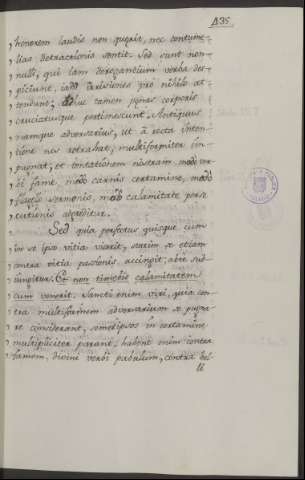 135.
„ honorem laudis non quærit, nec contume-
„ lias detractionis sentit. Sed sunt non-
„ nulli, qui jam derogantium verba des-
„ piciunt, jam irrisiones pro nihilo at-
„ tendunt; adhuc tamen pœnas corporis
„ cruciatusque pertimescunt. Antiquus
„ namque adversarius, ut à recta inten-
„ tione nos retrahat, multiformiter im-
„ pugnat, et tentationem nostram modo
„ fame, modo carnis certamine, modo
„ flagello sermonis, modo calamitate perse-
„ cutionis aggreditur.
„ Sed quia perfectus quisque cum
„ in se ipso vitia vicerit, statim se etiam
„ contra vitia passionis accingit, abte sub-
„ jungitur. Et non timebis calamitatem
„ cum venerit. Sancti enim viri, quia con-
„ tra multiformem adversarium se pugna-
„ re considerant, semetipsos in certamine
„ multipliciter parant; habent enim contra
„ famem, divini verbi pabulum, contra bel-
ll